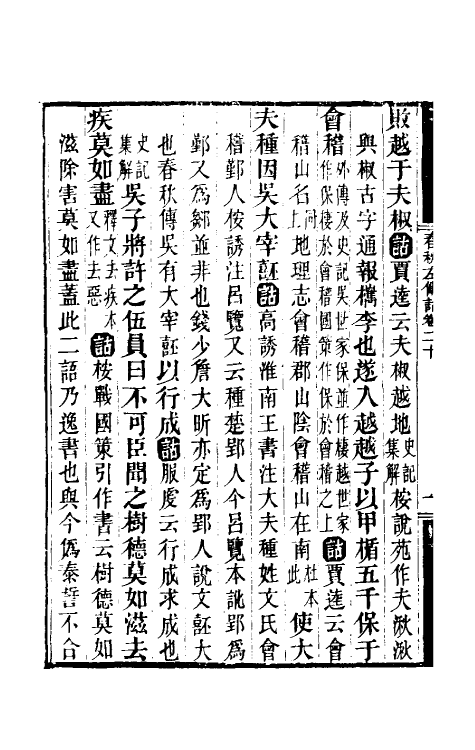 春秋左傳詁卷二十
一
敗越于夫椒詁賈逵云夫椒越地史記集解桉說苑作夫湫湫
與椒古字通報檇李也遂入越越子以甲楯五千保于
會稽外傳及史記吳世家保並作棲越世家作保棲於會稽國策作保於會稽之上詁賈逵云會
稽山名同上地理志會稽郡山陰會稽山在南杜本此使大
夫種因吳大宰嚭詁高誘淮南王書注大夫種姓文氏會
稽鄞人桉誘注呂覽又云種楚郢人今呂覽本訛郢爲
鄞又爲鄒並非也錢少詹大昕亦定爲郢人說文嚭大
也春秋傳吳有大宰嚭以行成詁服虔云行成求成也
史記集解吳子將許之伍員曰不可臣聞之樹德莫如滋去
疾莫如盡釋文去疾本又作去惡詁桉戰國策引作書云樹德莫如
滋除害莫如盡蓋此二語乃逸書也與今僞泰誓不合